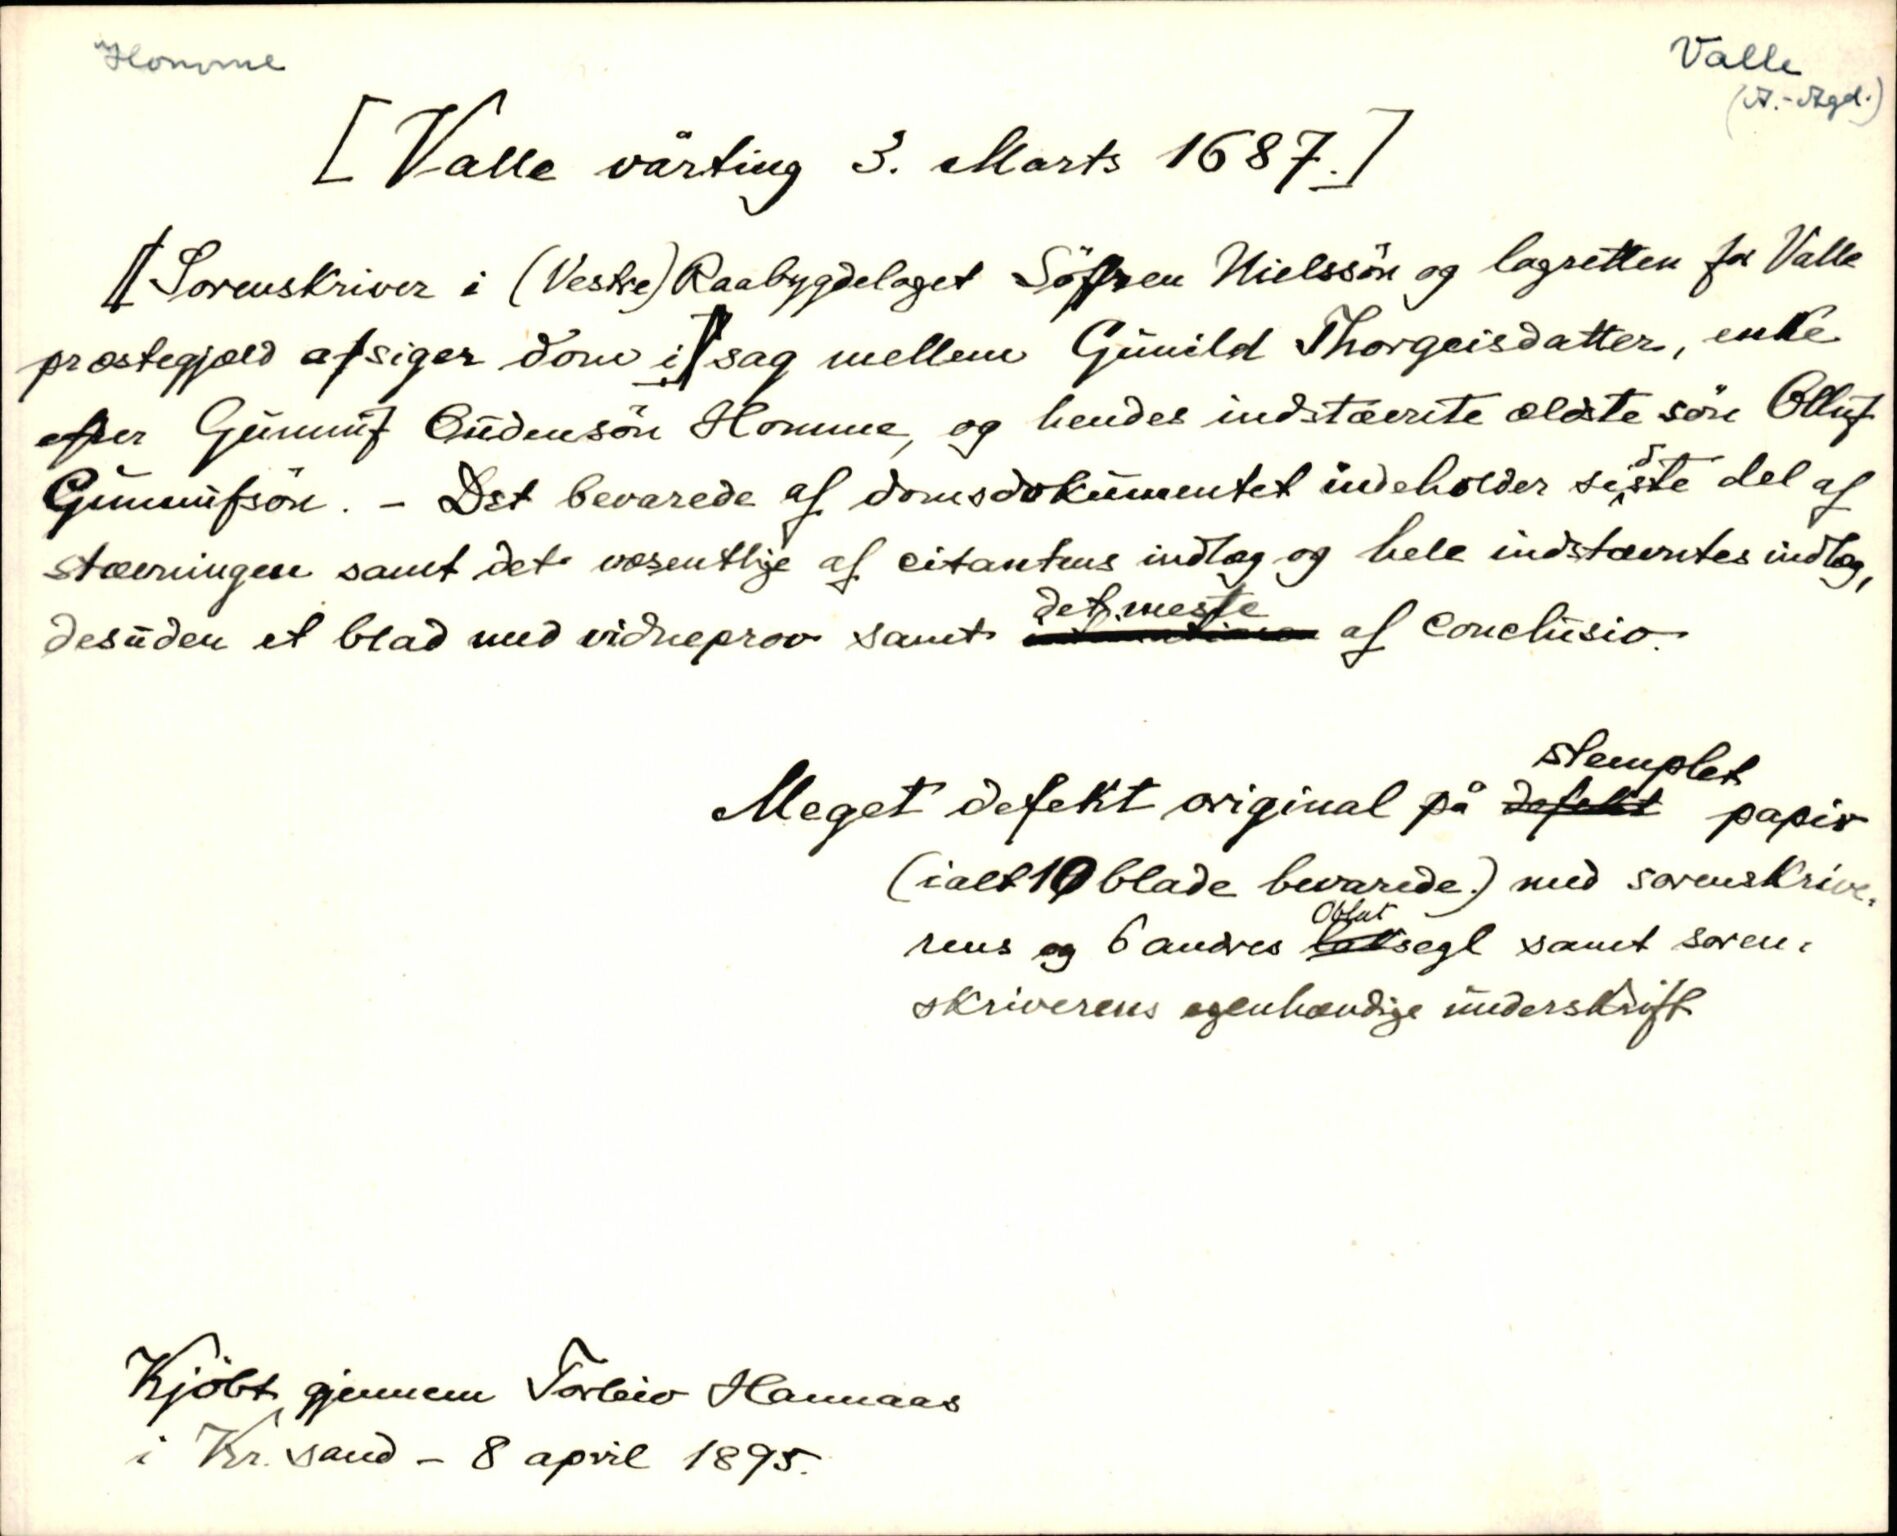 Homme
Valle
(A.-Agd.)
[Valle vårting 3. Marts 1687.]
[Sorenskriver i (Vestre) Raabygdelaget Söffren Nielssön og lagretten for Valle
præstegjæld afsiger dom i] sag mellem Gunild Thorgeisdatter, enke
efter Gunnuf Oudensön Homme, og hendes indstævnte ældste sön Olluf
Gunnufsön. - Det bevarede af domsdokumentet indeholder sidste del af
stævningen samt det væsentlige af citantens indlæg og hele indstævntes indlæg,
desuden et blad med vidneprov samt det meste af conclusio.
Meget defekt original på defekt stemplet papir
(ialt 10 blade bevarede.) med sorenskrive-
rens og 6 andres lak Oblatsegl samt soren-
skriverens egenhændige underskrift
Kjöbt gjennem Torleiv Hannaas
i Kr.sand - 8 april 1895.